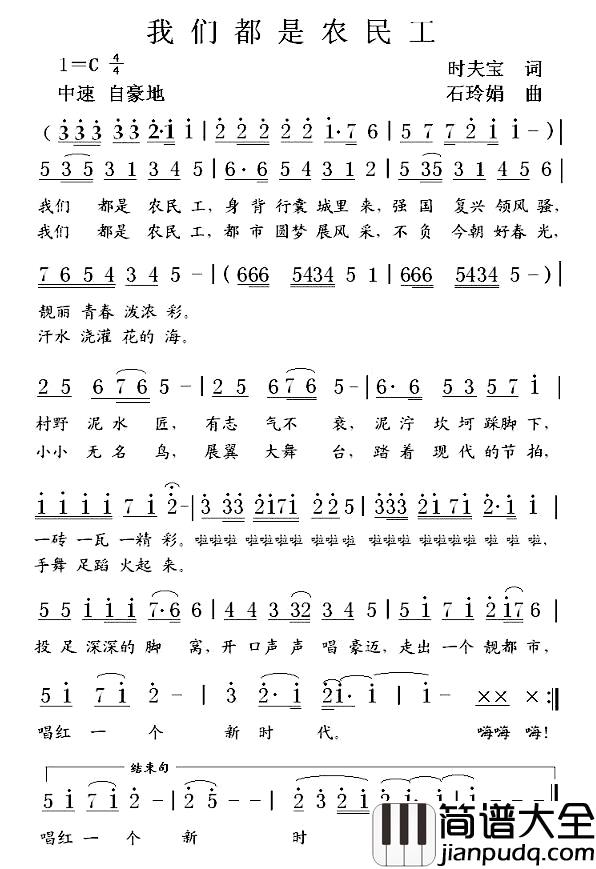 我们都是农民工
1=C 4/4
时夫宝 词
中速 自豪地
石玲娟 曲
(333 333 2·1 1 | 2 2 2 2 2 2 1·7 6 | 5 7 7 2 1 1 -) |
5 35 31 34 5 | 6· 54 031 2 | 5 35 31 345 |
我们 都是 农民 工,身 背 行囊 城里 来,强 国 复兴 领风 骚,
我们 都是 农民 工,都 市 圆梦 展风 采,不 负 今朝 好春 光,
7654 345 - | (666 5434 51 | 666 5434 5 -) |
靓丽 青春 泼浓 彩。
汗水 浇灌 花的 海。
25 676 5 - | 25 676 5 - | 6· 6 53 57 1 |
村野 泥水 匠, 有志 气不 衰,泥泞 坎坷 踩脚 下,
小小 无名 鸟, 展翼 大舞 台,踏着 现代 的节 拍,
1111 71 2 - | 3 33 2171 225 | 333 2171 2·1 1 |
一砖 一瓦 一精 彩。啦啦啦 啦啦啦啦 啦啦啦 啦啦啦 啦啦啦啦 啦 啦 啦,
手舞 足蹈 火起 来。
55 111 7·6 | 44 3 32 34 | 51 71 2 176 |
投足 深深的 脚 窝,开口声 声 唱豪迈,走出 一个 靓都 市,
51 71 2 - | 3 2·1 21· 1 - | ×× × :||
唱红 一 个 新 时 代。 嗨嗨 嗨!
结束句
51 71 2 - | 25 - - | 23 21
唱红 一 个 新 时
简谱大全
jianpudq.com